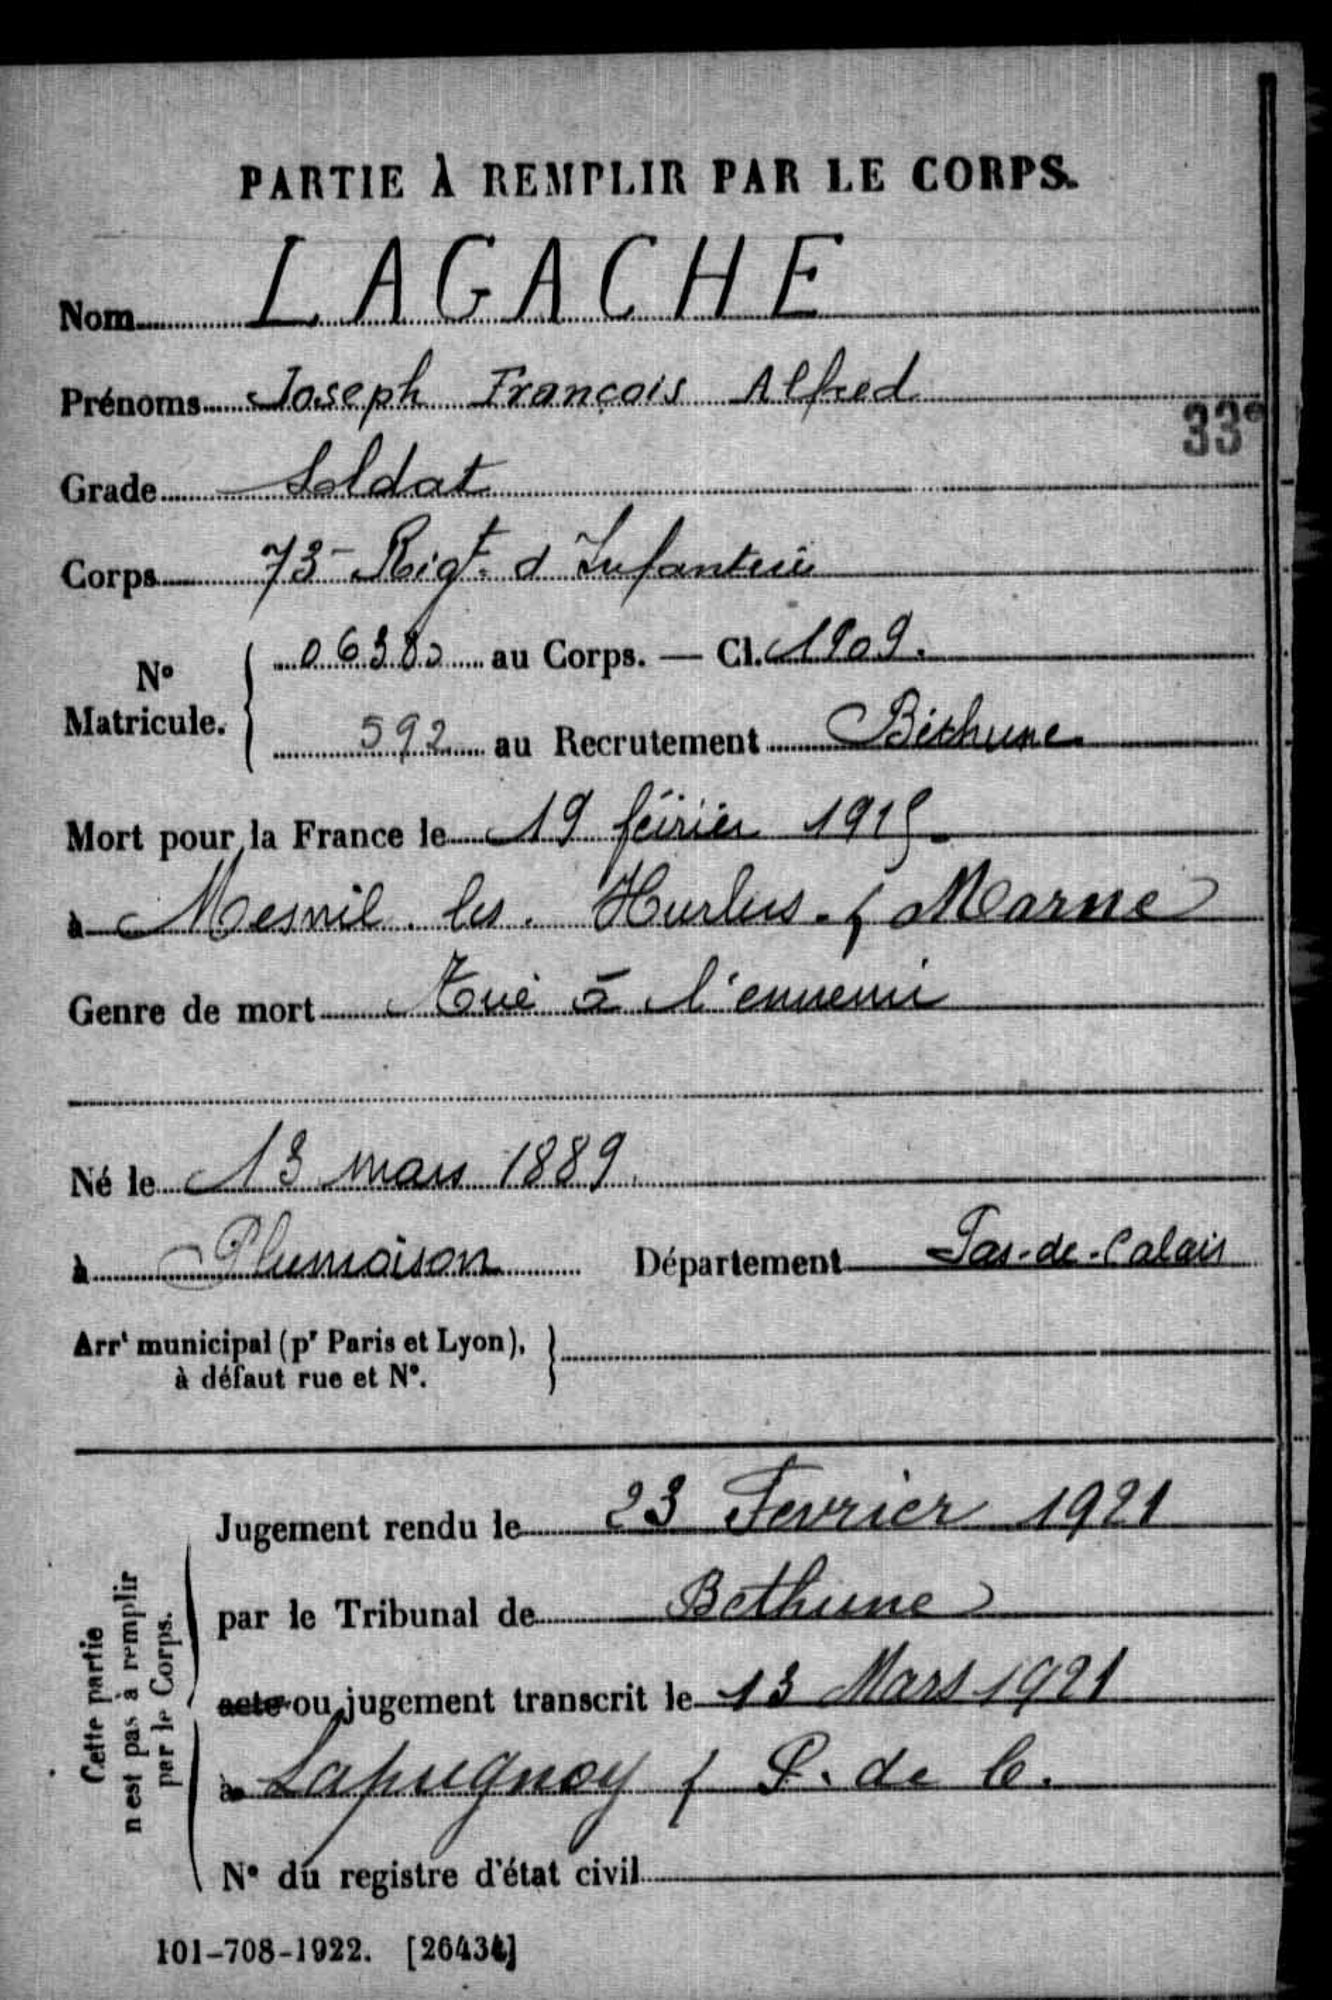 PARTIE À REMPLIR PAR LE CORPS.
Nom LAGACHE
Prénoms Joseph François Alfred
33e
Grade Soldat
Corps 73e Rigt. d Infanterie
No Matricule. { 06380 au Corps. — Cl. 1909.
592 au Recrutement Béthune
Mort pour la France le 19 février 1915.
à Mesnil les Hurlus. ( Marne
Genre de mort Tué à l'ennemi
Né le 13 mars 1889.
à Plumoison Département Pas-de-Calais
Arrt municipal (pr Paris et Lyon), }
à défaut rue et N°.
Cette partie
n'est pas à remplir
par le Corps.
Jugement rendu le 23 Fevrier 1921
par le Tribunal de Bethune
acte ou jugement transcrit le 13 Mars 1921
à Lapugnoy ( P. de C.
N° du registre d'état civil
101-708-1922. [26434]